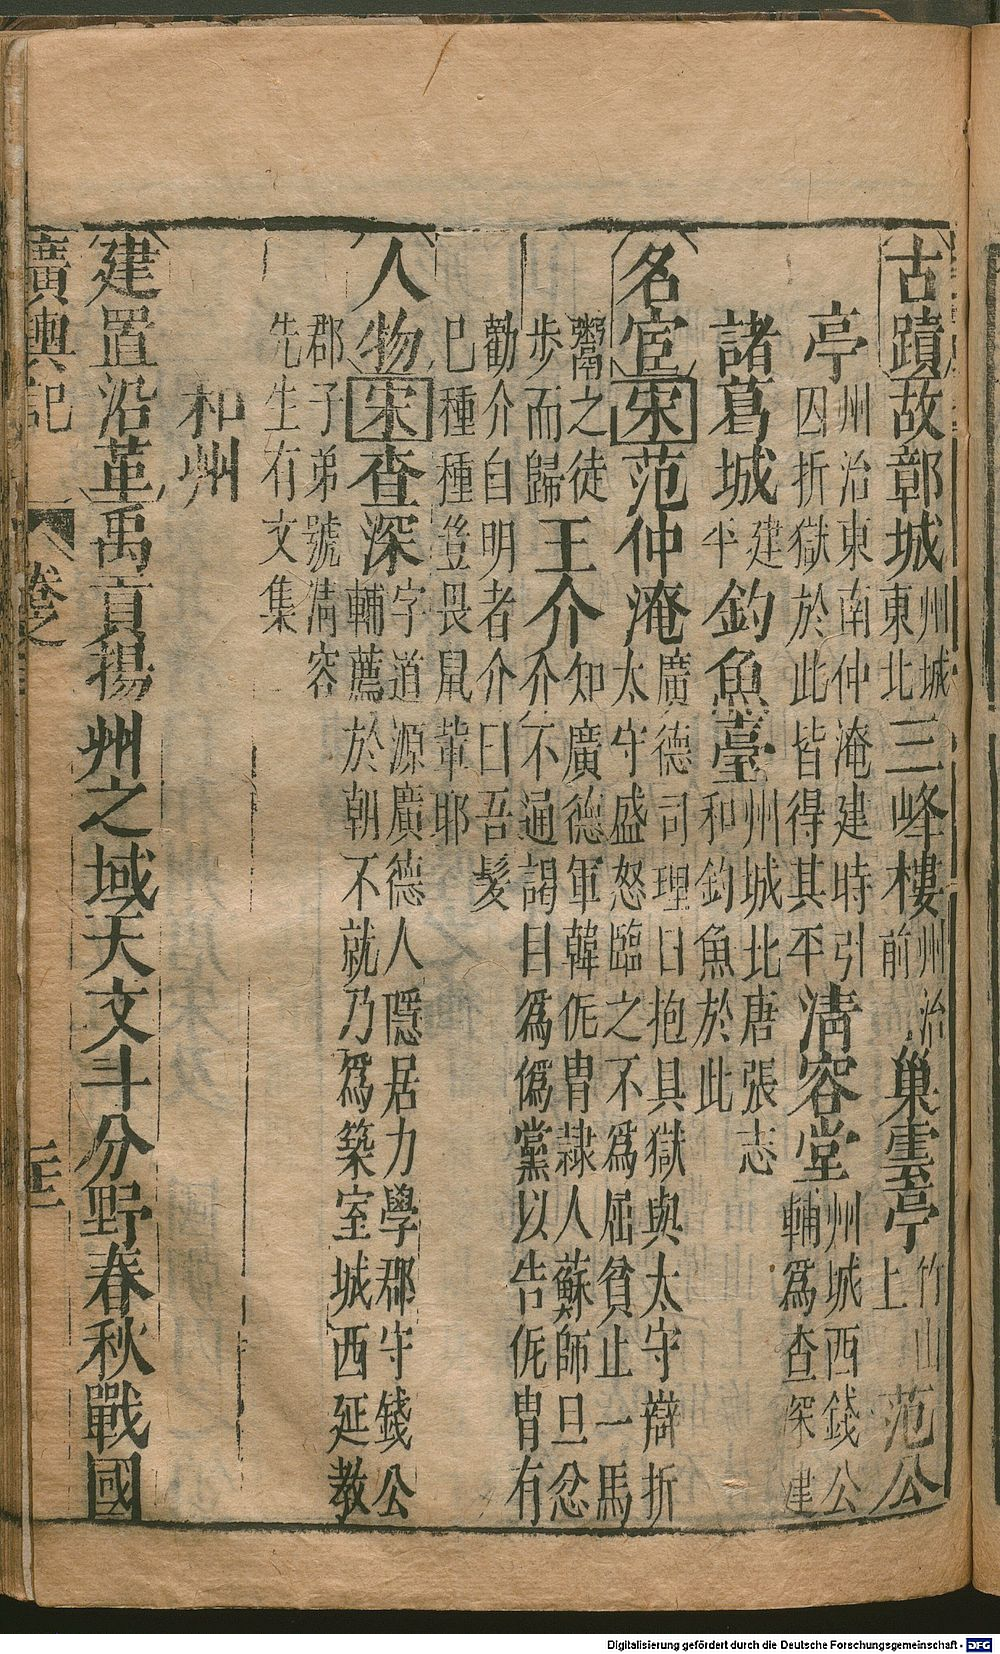 古蹟故鄣城州城東北三峰樓州治前巢雲亭竹山上范公
亭州治東南仲淹建時引囚折獄於此皆得其平清容堂州城西錢公輔爲查深建
諸葛城建平釣魚臺州城北唐張志和釣魚於此
名宦宋范仲淹廣德司理日抱具獄與太守辯折太守盛怒臨之不爲屈貧止一馬
鬻之徒步而歸王介知廣德軍韓侂冑隷人蘇師旦忿介不通謁目爲僞黨以告侂冑有
勸介自明者介曰吾髮已種種豈畏鼠輩耶
人物宋查深字道源廣德人隱居力學郡守錢公輔薦於朝不就乃爲築室城西延教
郡子弟號清容先生有文集
和州
建置沿革禹貢揚州之域天文斗分野春秋戰國
廣輿記
卷之
Digitalisierung gefördert durch die Deutsche Forschungsgemeinschaft - DFG